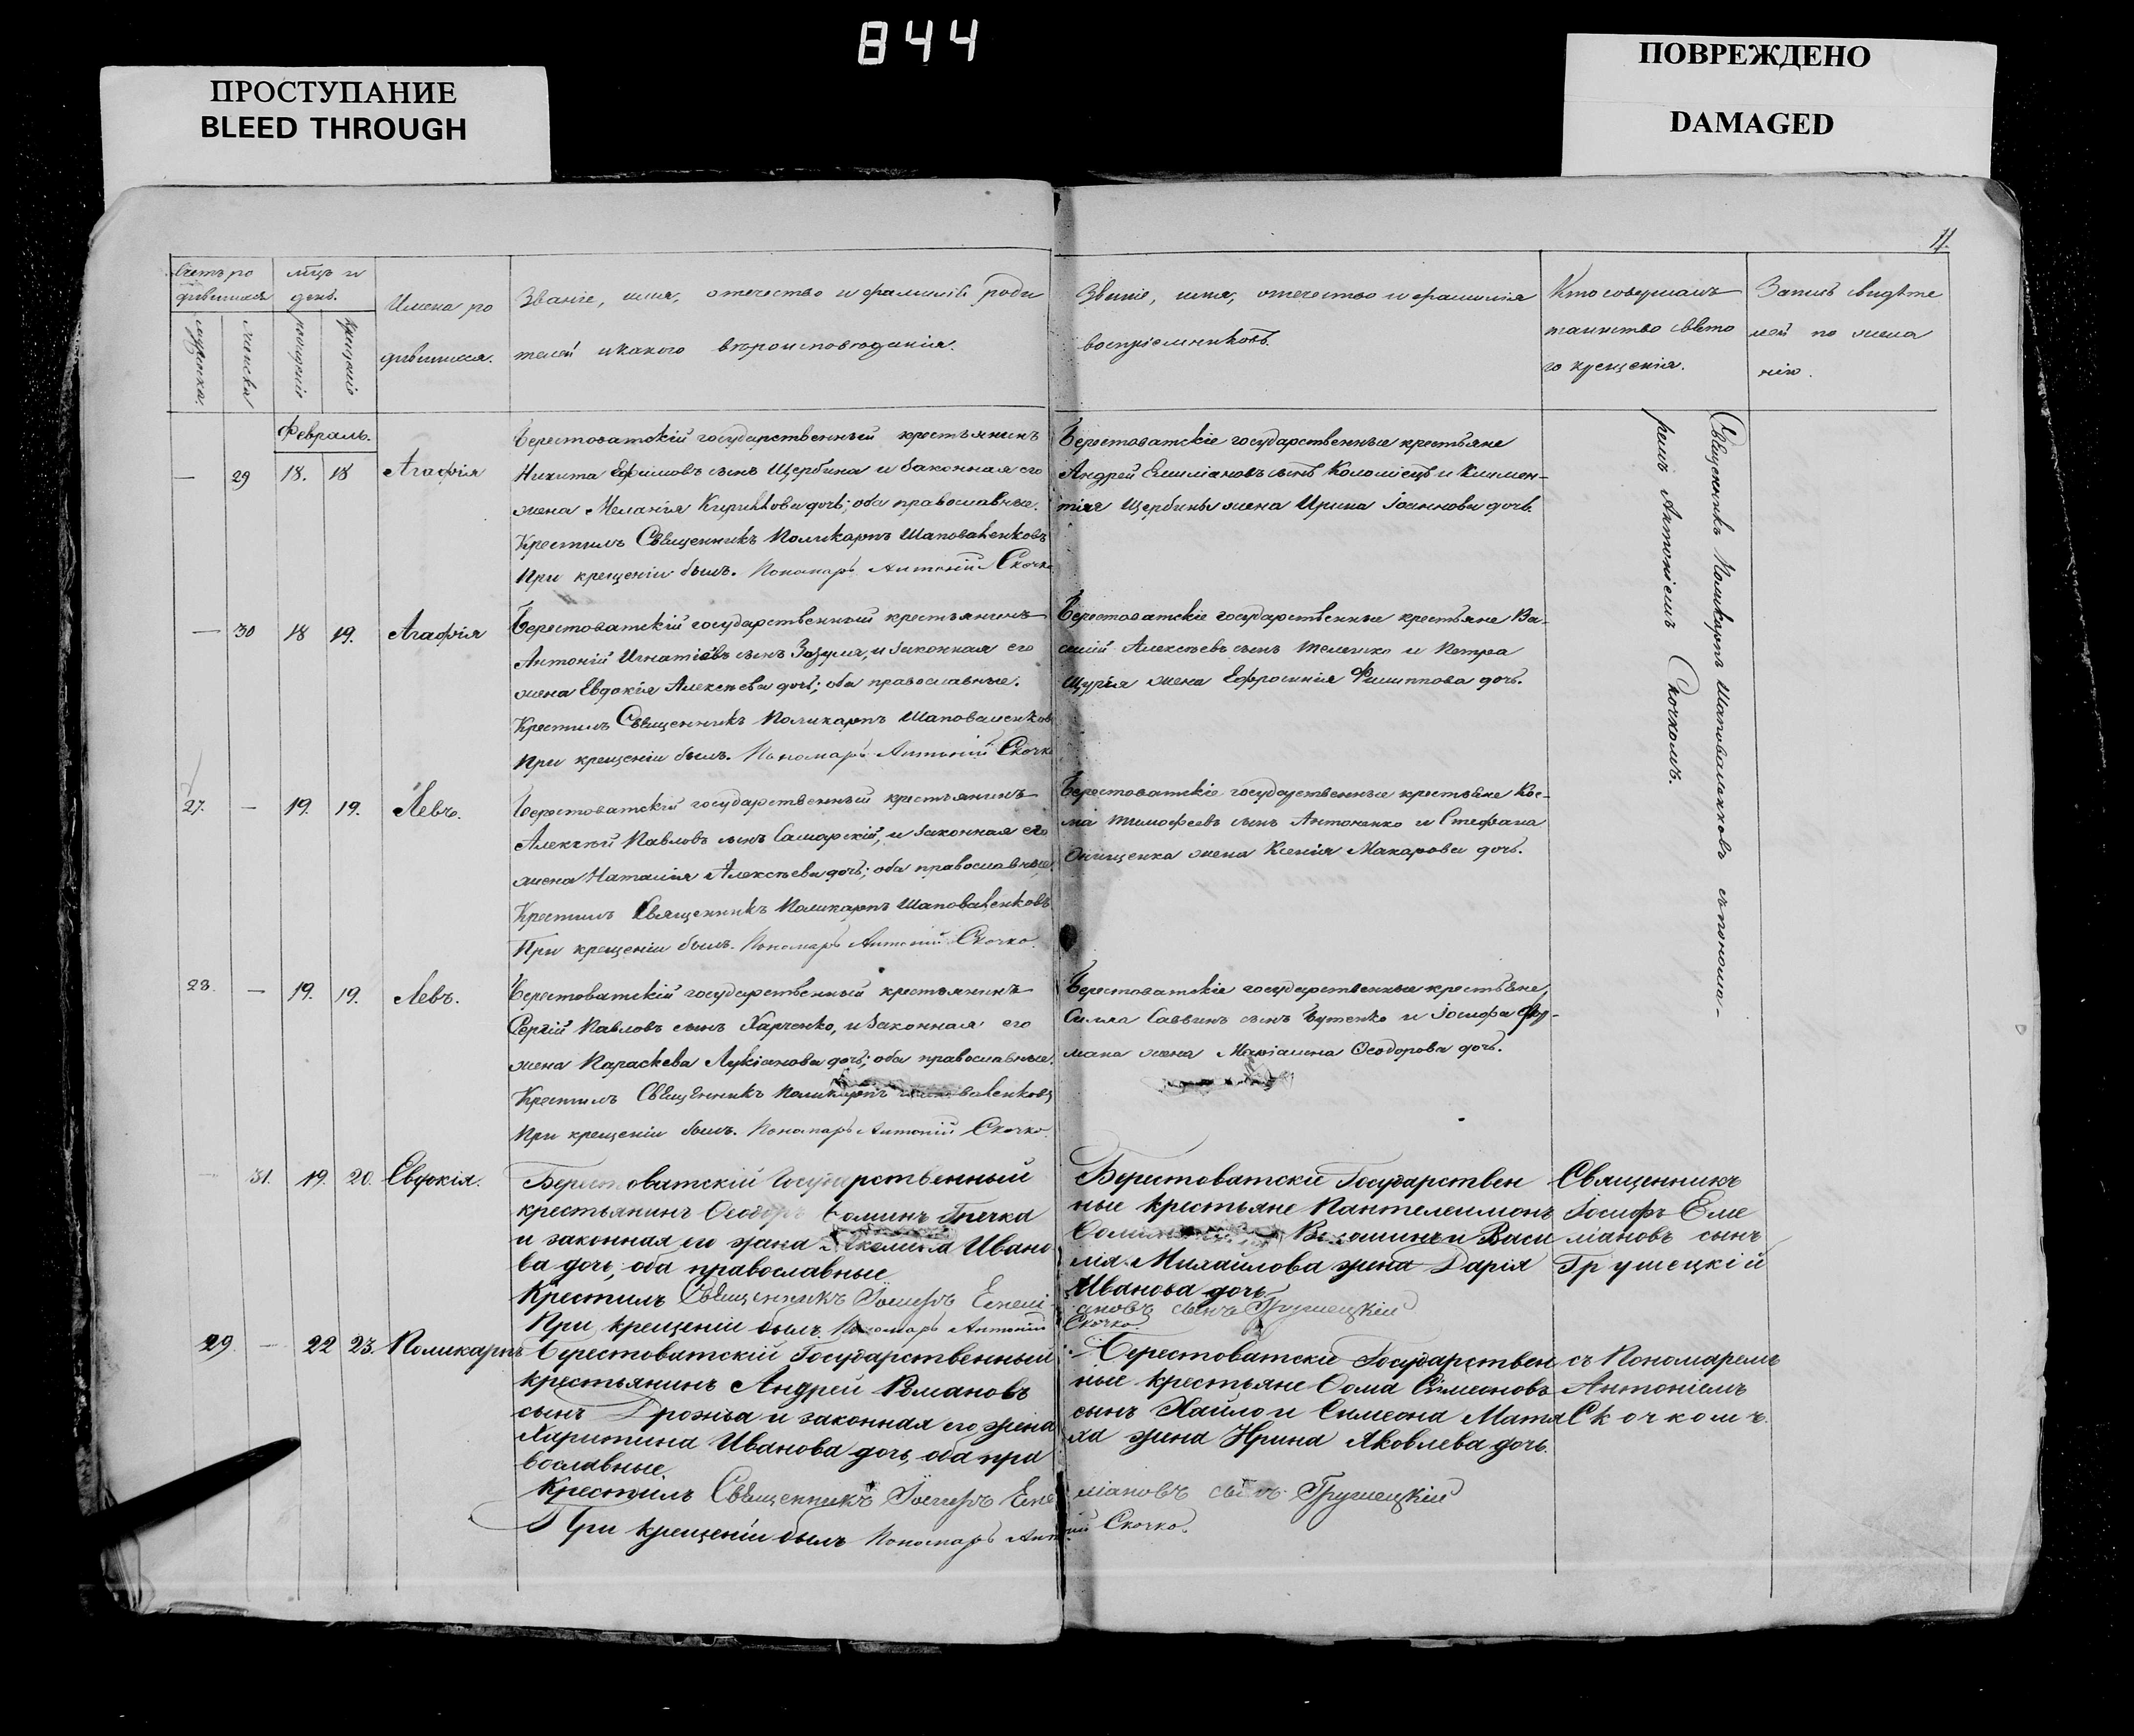 844
ПРОСТУПАНИЕ
BLEED THROUGH
ПОВРЕЖДЕНО
DAMAGED
Счетъ ро
дившихся
мужеска
женска
мѣсц. и
день.
рожденія
крещенія
Имена ро
дившихся.
Званіе, имя, отечество и фамилія роди
телей и какого вѣроисповѣданія.
Званіе, имя, отечество и фамилія
воспріемниковъ.
Кто совершалъ
таинство свято
го крещенія.
Запись свидѣте
лей по жела
нію.
Февраль.
— 29 18. 18 Агафія
Берестоватскій государственный крестьянинъ
Никита Ефимовъ сынъ Щербина и законная его
жена Меланія Кириллова дочь; оба православные.
Крестилъ Священникъ Поликарпъ Шаповаленковъ
При крещеніи былъ. Пономарь Антоній Скочко
Берестоватскіе государственные крестьяне
Андрей Емиліановъ сынъ Коломіецъ и Климен-
тія Щербины жена Ирина Іоаннова дочь.
— 30 18 19. Агафія
Берестоватскій государственный крестьянинъ
Антоній Игнатіевъ сынъ Зазуля, и законная его
жена Евдокія Алексѣева дочь; оба православные.
Крестилъ Священникъ Поликарпъ Шаповаленковъ
При крещеніи былъ. Пономарь Антоній Скочко
Берестоватскіе государственные крестьяне Ва-
силій Алексѣевъ сынъ и Петра
жена Ефросинія Филиппова дочь.
27. — 19. 19. Левъ.
Берестоватскій государственный крестьянинъ
Алексѣй Павловъ сынъ Самарскій, и законная его
жена Наталія Алексѣева дочь; оба православные.
Крестилъ Священникъ Поликарпъ Шаповаленковъ
При крещеніи былъ. Пономарь Антоній Скочко.
Берестоватскіе государственные крестьяне Кос-
ма Тимофеевъ сынъ Антоненко и Стефана
Онищенка жена Ксенія Макарова дочь.
28. — 19. 19. Левъ.
Берестоватскій государственный крестьянинъ
Сергій Павловъ сынъ Харченко, и законная его
жена Параскева Лукіанова дочь; оба православные.
Крестилъ Священникъ Поликарпъ Шаповаленковъ
При крещеніи былъ. Пономарь Антоній Скочко.
Берестоватскіе государственные крестьяне,
Силла Саввинъ сынъ Бутенко и Іосифа
мана жена Ѳеодорова дочь.
Священникъ Поликарпъ Шаповаленковъ съ понома-
ремъ Антоніемъ Скочкомъ.
31. 19. 20. Евдокія.
Берестоватскій Государственный
крестьянинъ Ѳеодоръ Гречка
и законная его жена Акелина Ивано
ва дочь, оба православные
Крестилъ Священникъ Іосифъ Емелі
При крещеніи былъ. Пономарь Антоній
Берестоватскіе Государствен
ные крестьяне Пантелеимонъ
и Васи
лія Михайлова жена Дарія
Иванова дочь.
ановъ сынъ Грушецкій
Скочко.
Священникъ
Іосифъ Еме
ліановъ сынъ
Грушецкій
29. — 22 23. Поликарпъ
Берестоватскій Государственный
крестьянинъ Андрей Романовъ
сынъ и законная его жена
Харитина Иванова дочь, оба пра
вославные.
Крестилъ Священникъ Іосифъ Еме
При крещеніи былъ Пономарь Анто
Берестоватскіе Государствен
ные крестьяне Ѳома Симеоновъ
сынъ Хайло и Симеона Матя
ха жена Ирина Яковлева дочь.
ліановъ сынъ Грушецкій
ній Скочко.
съ Пономаремъ
Антоніемъ
Скочкомъ.